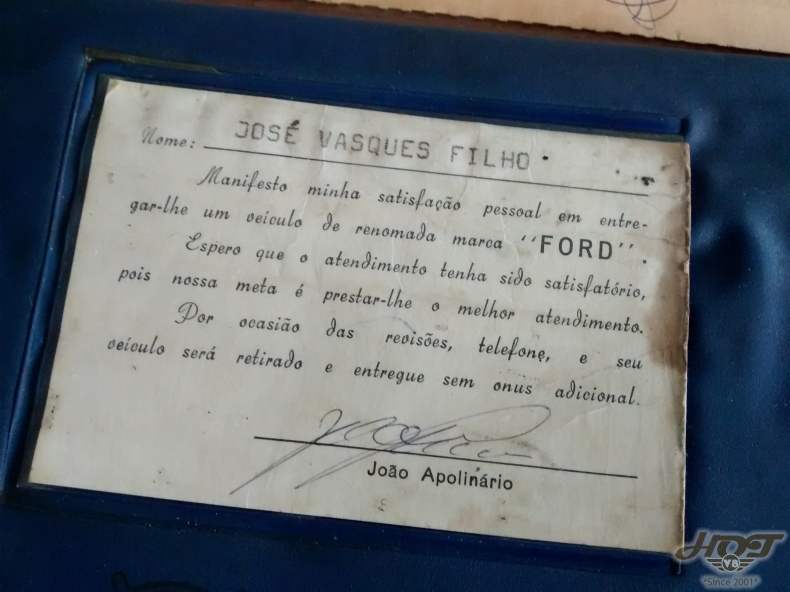 Nome: JOSÉ VASQUES FILHO.
Manifesto minha satisfação pessoal em entre-
gar-lhe um veículo de renomada marca "FORD".
Espero que o atendimento tenha sido satisfatório,
pois nossa meta é prestar-lhe o melhor atendimento.
Por ocasião das revisões, telefone, e seu
veículo será retirado e entregue sem onus adicional.
João Apolinário
HOT
V8
"Since 2001"